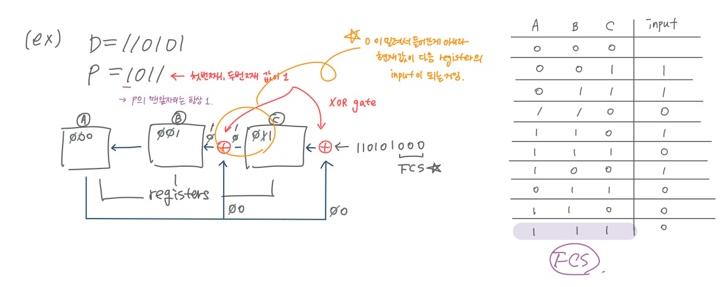 (ex) D=110101
P = 1011 ← 첫번째, 두번째 값이 1
→ P의 맨앞자리는 항상 1.
☆ 0이 밀려서 들어온게 아니라
현재값이 다음 register의
input이 되는거임.
XOR gate
A
B
C
000
001
0
1
0
1
0X1
← 110101000
FCS ☆
registers
00
00
A B C input
0 0 0
0 0 1 1
0 1 1 1
1 1 0 0
1 1 0 1
1 1 1 0
1 0 0 1
0 1 1 0
1 1 0 0
1 1 1 0
FCS